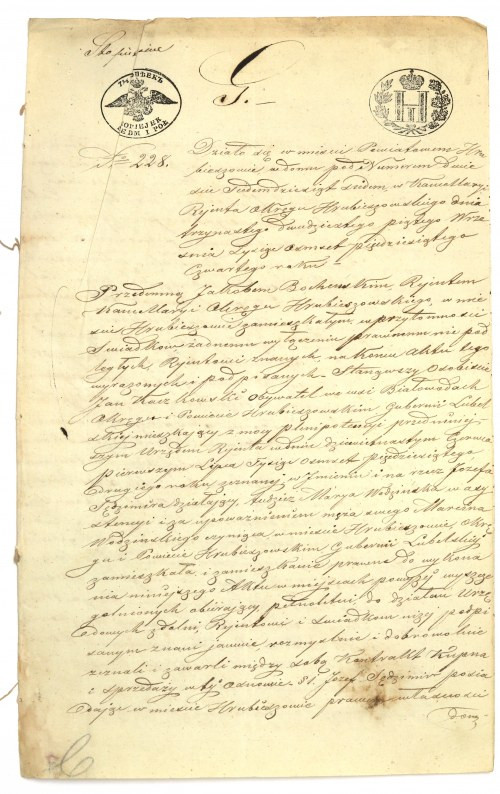 7½ КОПѢЕКЪ
G.
KOPIEJEK
SIEDM I PÓŁ
№ 228.
Działo się w mieście Powiatowem Hru
bieszowie w domu pod Numerem dwie
ście siedemdziesiąt siedm, w Kancellaryi
Rejenta Okręgu Hrubieszowskiego dnia
trzynastego dwudziestego piątego Wrze
śnia Tysiąc Osmset Pięćdziesiątego
Czwartego roku
Przedemną Jakobem Rejentem
Kancellaryi Okręgu Hrubieszowskiego, w mie
ście Hrubieszowie zamieszkałym, w przytomności
Świadków żadnemu wyłączeniu prawnemu nie pod
ległych, Rejentowi znanych, na końcu Aktu tego
wyrażonych i podpisanych – Stanąwszy Osobiście
Jan Kaczkowski Obywatel we wsi Białowodach
Okręgu i Powiecie Hrubieszowskim Gubernii Lubel
skiej mieszkający z mocy plenipotencyi przed niniej
szym Urzędem Rejenta w dniu dziewiętnastym Czerwca
pierwszym Lipca Tysiąc Osmset Pięćdziesiątego
drugiego roku zeznanej w Imieniu i na rzecz Józefa
Sędzimira działający, tudzież Marya Wodzińska w asy
stencyi i za upoważnieniem męża swego Marcina
Wodzińskiego czyniąca, w mieście Hrubieszowie, Okrę
gu i Powiecie Hrubieszowskim Gubernii Lubelskiej
zamieszkała, i zamieszkanie prawne do wykona
nia niniejszego Aktu w miejscach powyżej wyszcze
gólnionych obierający, pełnoletni do działań Urzę
dowych zdolni, Rejentowi i Świadkom niżej podpi
sanym znani jawnie, rozmyślnie i dobrowolnie
zeznali i zawarli między sobą Kontrakt Kupna
i sprzedaży w tej Osnowie. §1. Józef Sędzimir posia
dając w mieście Hrubieszowie prawem własności